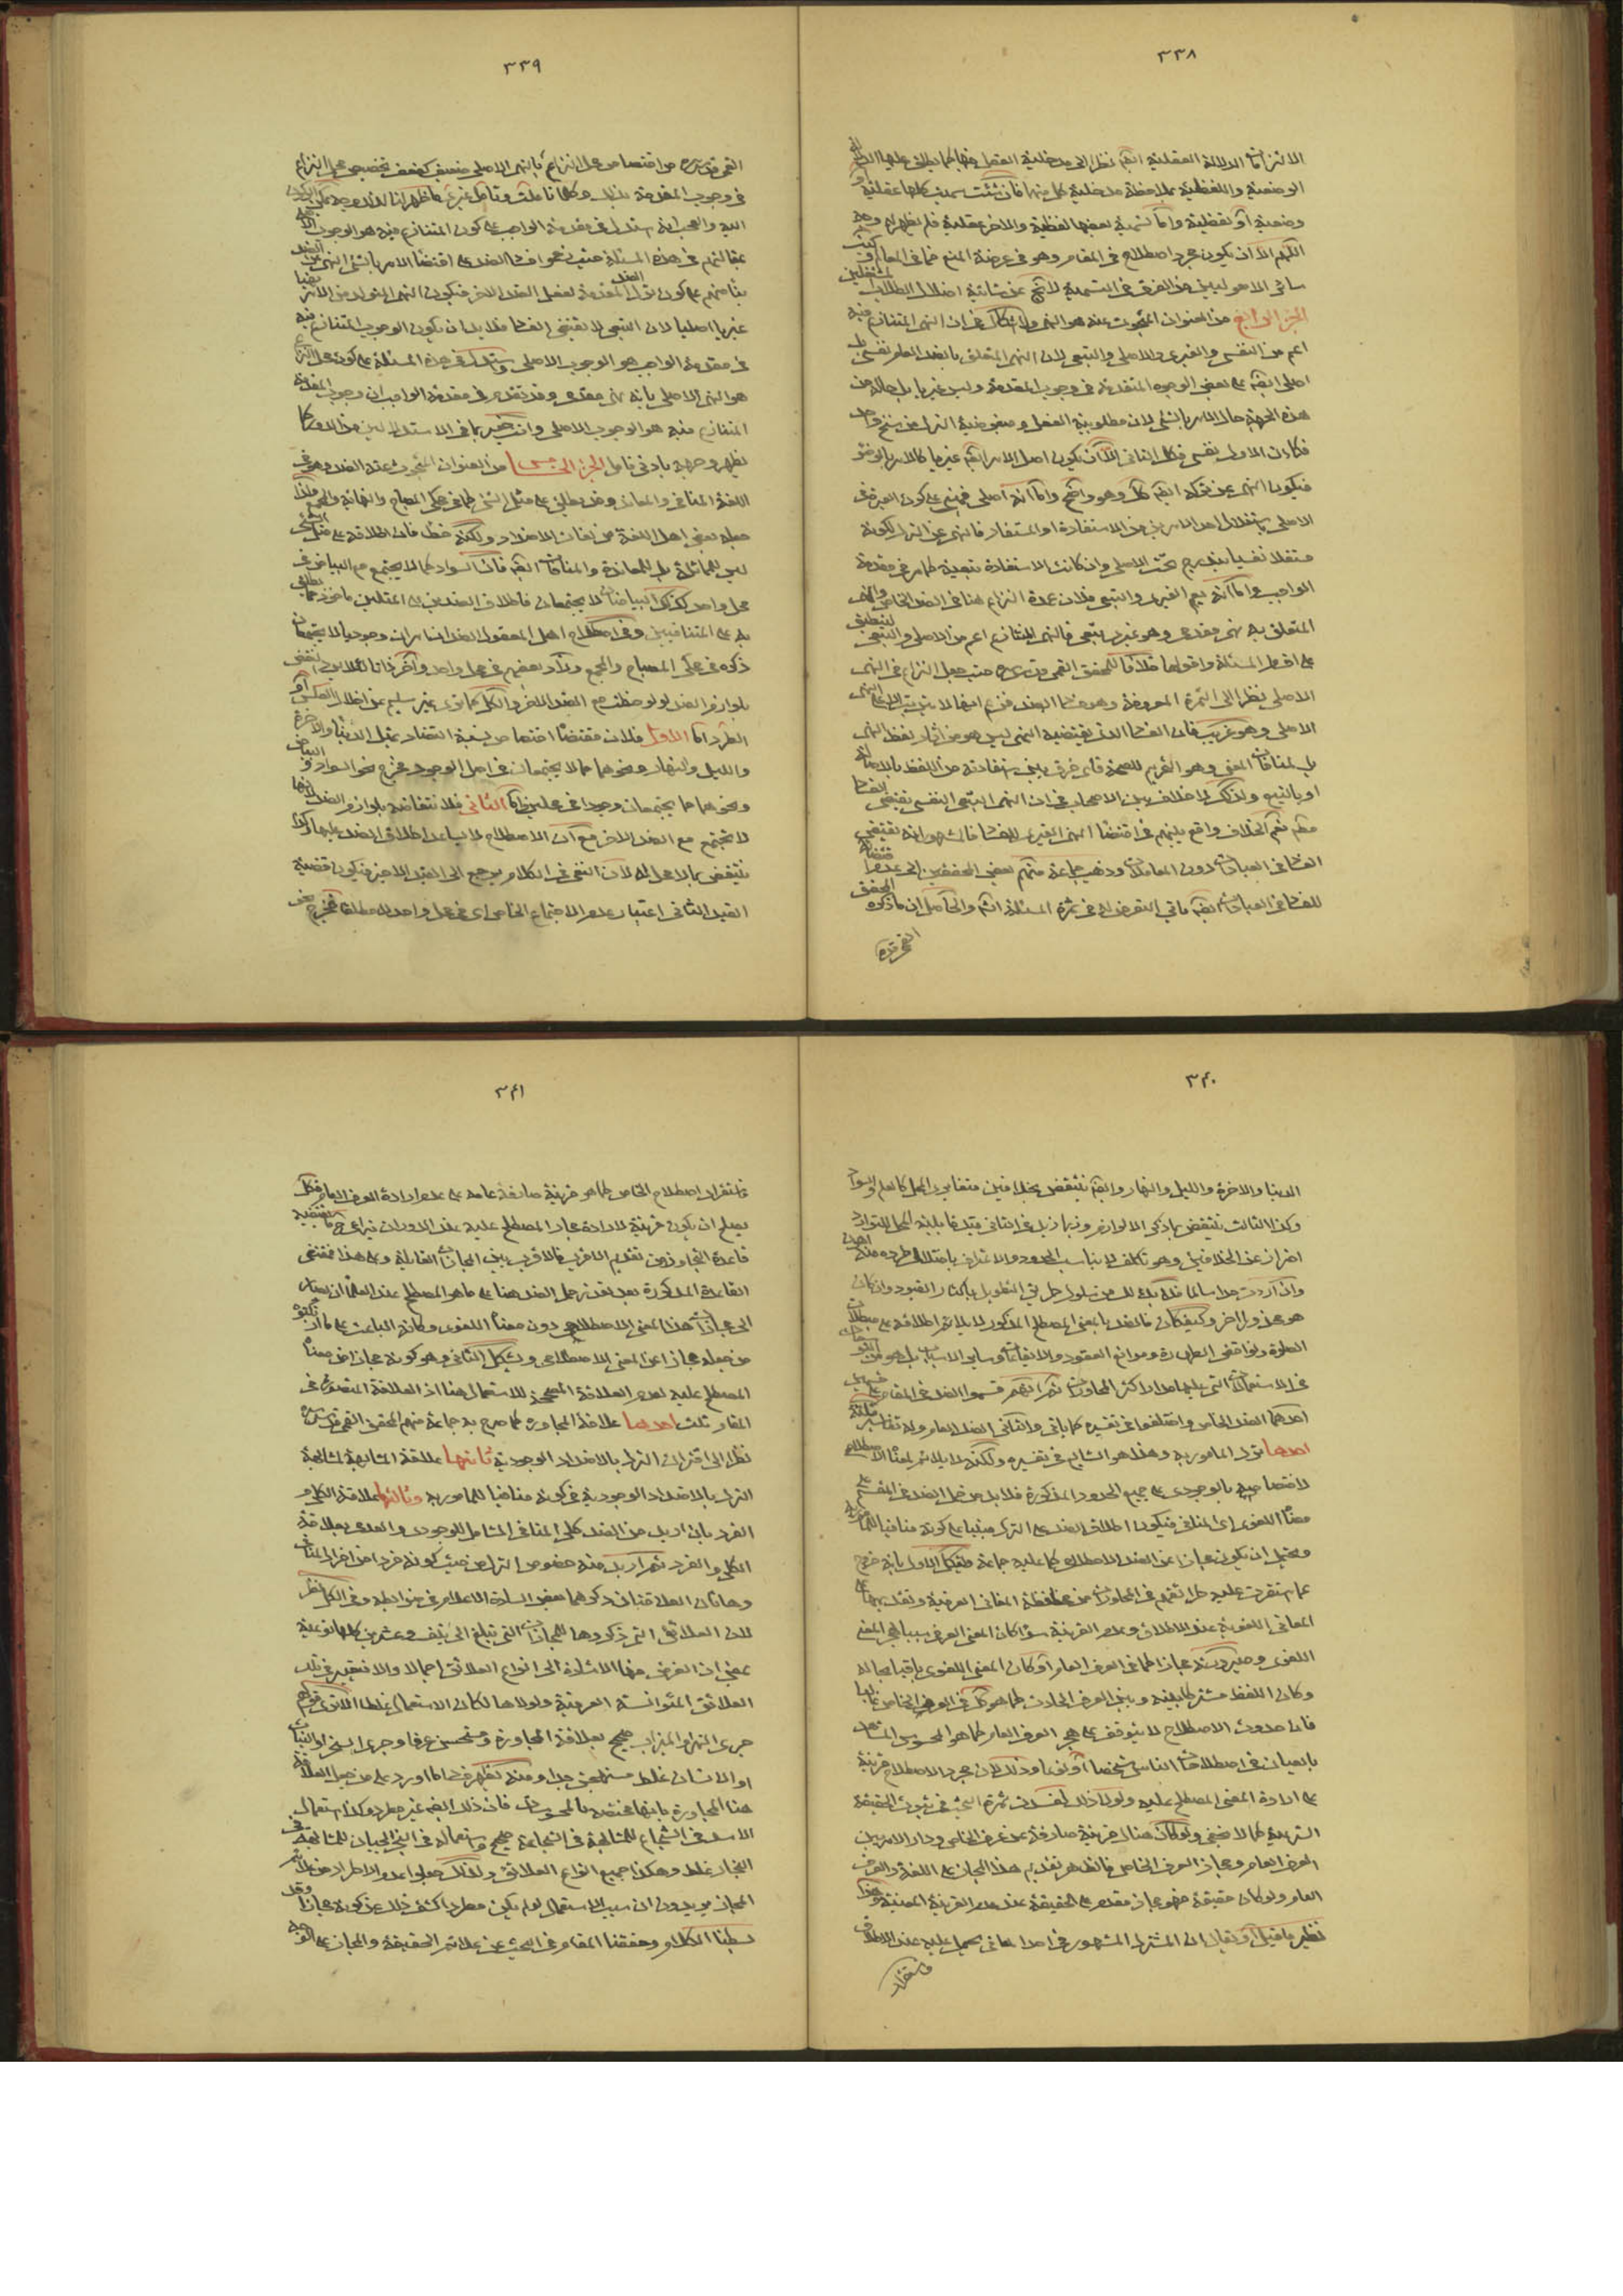 ٣٣٨
الالتزامات الدلالة العقلية ايضا نظرا الى مدخلية العقل فيها كما يطلق عليها الدلالة
الوضعية واللفظية بملاحظة مدخلية كل منهما فان شئت سميت كلها عقلية او
وضعية او لفظية واما تسمية بعضها لفظية والاخر عقلية فلم يظهر له وجه
اللهم الا ان يكون مجرد اصطلاح في المقام وهو في عرضة المنع
الجزء الرابع من العنوان المبحوث عنه هو النهى ولا اشكال في ان النهى المتنازع فيه
اعم من النفسى والغيرى والاصلى والتبعى لان النهى المتعلق بالضد العام نفسى
اصلى ايضا على بعض الوجوه المتقدمة في وجوب المقدمة وليس غيريا بل حاله من
هذه الجهة حال الامر بالشئ لان مطلوبية الفعل ومبغوضية الترك من سنخ واحد
فكان الاول نفسى فكك الثانى الا ان يكون اصل الامر ايضا غيريا كالامر بالوضوء
فيكون النهى عن تركه ايضا كك وهو واضح واما انه اصلى فمبنى على كون العبرة في
الاصلى باستقلال احد الامرين من الاستفادة او المستفاد فالنهى عن الترك لكونه
مستقلا نفسيا يندرج تحت الاصلى وان كانت الاستفادة تبعية كما مر في مقدمة
الواجب واما انه يعم الغيرى والتبعى فلان عمدة النزاع هنا في الضد الخاص والنهى
المتعلق به نهى مقدمى وهو غيرى تبعى فالنهى المتنازع اعم من الاصلى والتبعى
على اقوال المسئلة واقوالها خلافا للمحقق القمى قدس سره حيث جعل النزاع في النهى
الاصلى نظرا الى الثمرة المعروفة وهو فساد الضد فزعم انها لا يترتب الا على النهى
الاصلى وهو غريب فان الفساد الذى يقتضيه النهى ليس هو من اثار لفظ النهى
بل لمنافات المعنى وهو التحريم للصحة فاى فرق بين استفادته من اللفظ بالاصالة
او بالتبع ولذلك لا خلاف بين الاصحاب في ان النهى التبعى النفسى يقتضى الفساد
نعم الخلاف واقع بينهم في اقتضاء النهى الغيرى للفساد فالمشهور انه يقتضى
الفساد في العبادات دون المعاملات وذهب جماعة منهم بعض المحققين الى عدم اقتضائه
للفساد في العبادات ايضا ياتى التعرض له في ثمرة المسئلة انشه والحاصل ان ما ذكره المحقق
القمى قده
٣٣٩
القمى قدس سره من اختصاص محل النزاع بالنهى الاصلى ضعيف كضعف تخصيص محل النزاع
في وجوب المقدمة بذلك وكلما تاملت وتامل غيرى ما ظهر لنا له وجه يمكن الركون
اليه والعجب انه استدل في مقدمة الواجب على كون المتنازع فيه هو الوجوب الاصلى
بنائهم على كون ترك الضد مقدمة لفعل الضد الاخر فيكون النهى المتولد من الامر
غيريا اصليا لان التبعى لا يقتضى الفساد فلا بد ان يكون الوجوب المتنازع فيه
في مقدمة الواجب هو الوجوب الاصلى واستدل في هذه المسئلة على كون محل النزاع
هو النهى الاصلى بانه نهى مقدمى وقد تقدم في مقدمة الواجب ان وجوب المقدمة
المتنازع فيه هو الوجوب الاصلى وانت خبير بما في الاستدلالين من الدور كما
يظهر وجهه بادنى تامل الجزء الخامس من العنوان المبحوث عنه الضد وهو في
اللغة المنافى والمعاند وقد يطلق على مثل الشئ كما في محكى المصباح والنهاية والمجمع ولذا
جعله بعض اهل اللغة من لغات الاضداد ولكنه خطأ فان اطلاقه على مثل الشئ
ليس للمماثلة بل للمعاندة والمنافات ايضا فان السواد كما لا يجتمع مع البياض في
محل واحد كذلك البياضان لا يجتمعان فاطلاق الضدين على المثلين ماخوذ مما يطلق
به على المتنافيين وفي اصطلاح اهل المعقول الضدان امران وجوديان لا يجتمعان
ذكره في محكى المصباح والمجمع وزاد بعضهم في محل واحد واخر ذاتا لئلا ينتقض
بلوازم الضد لو لوحظت مع الضد الاخر والكل كما ترى غير سليم عن اخلال العكس او
الطرد اما الاول فلان مقتضاه اختصاص نسبة التضاد بمثل الدنيا والاخرة
والليل والنهار ونحوهما مما لا يجتمعان في اصل الوجود فخرج نحو السواد والبياض
ونحوهما مما يجتمعان وجودا في محلين واما الثانى فلانتقاضه بلوازم الضد لانها
لا تجتمع مع الضد الاخر مع ان الاصطلاح لا يساعد اطلاق الضد عليها وكذا
ينتقض بما لا محل له لان النفى في الكلام يرجع الى القيد الاخير فيكون قضية
القيد الثانى اعتبار عدم الاجتماع الخاص اى في محل واحد لا مطلقا فخرج نحو
٣٤٠
الدنيا والاخرة والليل والنهار وايضا ينتقض بخلافين متغايرى المحل كالعلم والسواد
وكذا الثالث ينتقض بما ذكر الا لوازم وربما زيد في الثانى قيد قابلية المحل للتوارد
احتراز عن الخلافين وهو تكلف لا يناسب الحدود والاعتراف باختلال طرده منه اهون
وان اردت حدا سالما فلا بد لك من سلوك طريق التطويل باكثار القيود وان كان
هو محذورا اخر وكيف كان فالضد بالمعنى المصطلح المذكور لا يلايم اطلاقه على مبطلات
الصلوة ونواقض الطهارة وموانع العقود والايقاعات وساير الاسباب
في الاستعمالات التى عليها مدار اكثر المحاورات ثم انهم قسموا الضد في المقام على قسمين
احدهما الضد الخاص واختلفوا في تفسيره كما ياتى والثانى الضد العام وله تفاسير ثلثة
احدها ترك المامور به وهذا هو الشايع في تفسيره ولكنه لا يلائم لمعناه الاصطلاحى
لاختصاصه بالوجودى على جميع الحدود المذكورة فلا بد من حمل الضد في المقسم على
معناه اللغوى اى المنافى فيكون اطلاق الضد على الترك مبنيا على كونه منافيا للمامور به
ويحتمل ان يكون مجازا عن الضد الاصطلاحى كما عليه جماعة ويشكل الاول بانه خروج
عما استقرت عليه طريقتهم في المحاورات من محافظة المعانى العرفية وتقديمها على
المعانى اللغوية عند الاطلاق وعدم القرينة سواء كان المعنى العرفى سببا لهجر المعنى
اللغوى وصيرورته مجازا كما في العرف العام او كان المعنى اللغوى باقيا بحاله
وكان اللفظ مشتركا بينه وبين العرف الحادث كما هو كك في العرف الخاص غالبا
فان حدوث الاصطلاح لا يتوقف على هجر العرف العام كما هو المحسوس المشاهد
بالعيان في اصطلاحات الناس شخصا او نوعا وذلك لان مجرد الاصطلاح قرينة
على ارادة المعنى المصطلح عليه ولولا ذلك لفسدت ثمرة البحث في ثبوت الحقيقة
الشرعية كما لا يخفى ولو كان هناك قرينة صارفة عن عرف الخاص ودار الامر بين
العرف العام ومجاز العرف الخاص فالظاهر تقديم هذا المجاز على اللغة والعرف
العام ولو كان حقيقة فهو مجاز مقدم على الحقيقة عند عدم القرينة المعينة وهذا
نظير ما قيل او يقال ان المشترك المشهور في احد المعانى يحمل عليه عند الاطلاق
فاستقرار
٣٤١
فاستقرار اصطلاح الخاص كما هو قرينة صارفة عامة على عدم ارادة العرف العام فكك
يصلح ان يكون قرينة لارادة مجاز المصطلح عليه عند الدوران فيراعى ح ما يقتضيه
قاعدة التجاوز من تقديم الاقرب فالاقرب بين المجازات القابلة وعلى هذا فمقتضى
القاعدة المذكورة بعد تعذر حمل الضد هنا على ما هو المصطلح عند العلماء ان يصار
الى مجازات هذا المعنى الاصطلاحى دون معناه اللغوى وكانه الباعث على ما ارتكبوه
من جعله مجازا عن المعنى الاصطلاحى ويشكل الثانى وهو كونه مجازا من معناه
المصطلح عليه بعدم العلاقة المصححة للاستعمال هنا اذ العلاقة المتصورة في
المقام ثلث احدها علاقة المجاورة كما صرح به جماعة منهم المحقق القمى قدس سره
نظرا الى اقتران الترك بالاضداد الوجودية ثانيها علاقة المشابهة لمشابهة
الترك بالاضداد الوجودية في كونه منافيا للمامور به وثالثها علاقة الكلى و
الفرد بان اريد من الضد كلى المنافى الشامل للوجودى والعدمى بعلاقة
الكلى والفرد ثم اريد منه خصوص الترك من حيث كونه فردا من افراد المنافى
وهاتان العلاقتان ذكرهما بعض السادة الاعلام في ضوابطه وفي الكل نظر
لان العلائق التى ذكروها للمجازات التى تبلغ الى نيف وعشرين كلها نوعية
بمعنى ان الغرض منها الاشارة الى انواع العلائق اجمالا والا فتعتبر في تلك
العلائق المؤانسة العرفية ولولاها لكان الاستعمال غلطا الا ترى قولهم
جرى النهر والميزاب صحيح بعلاقة المجاورة ومستحسن عرفا وجرى الشجر او النبات
او الانسان غلط مستهجن جدا ومنه يظهر فساد ما اورد على من جعل العلاقة
هنا المجاورة بانها مختصة بالمحسوسات فان ذلك ايضا غير مطرد وكذا استعمال
الاسد في الشجاع للمشابهة في الشجاعة صحيح واستعماله في الجبان للمشابهة في
البخار غلط وهكذا جميع انواع العلائق ولذلك جعلوا عدم الاطراد من علائم
المجاز مريدين ان سبب الاستعمال لو لم يكن مطردا كشف ذلك عن كونه مجازا وقد
بسطنا الكلام وحققنا المقام في البحث عن علائم الحقيقة والمجاز على الوجه